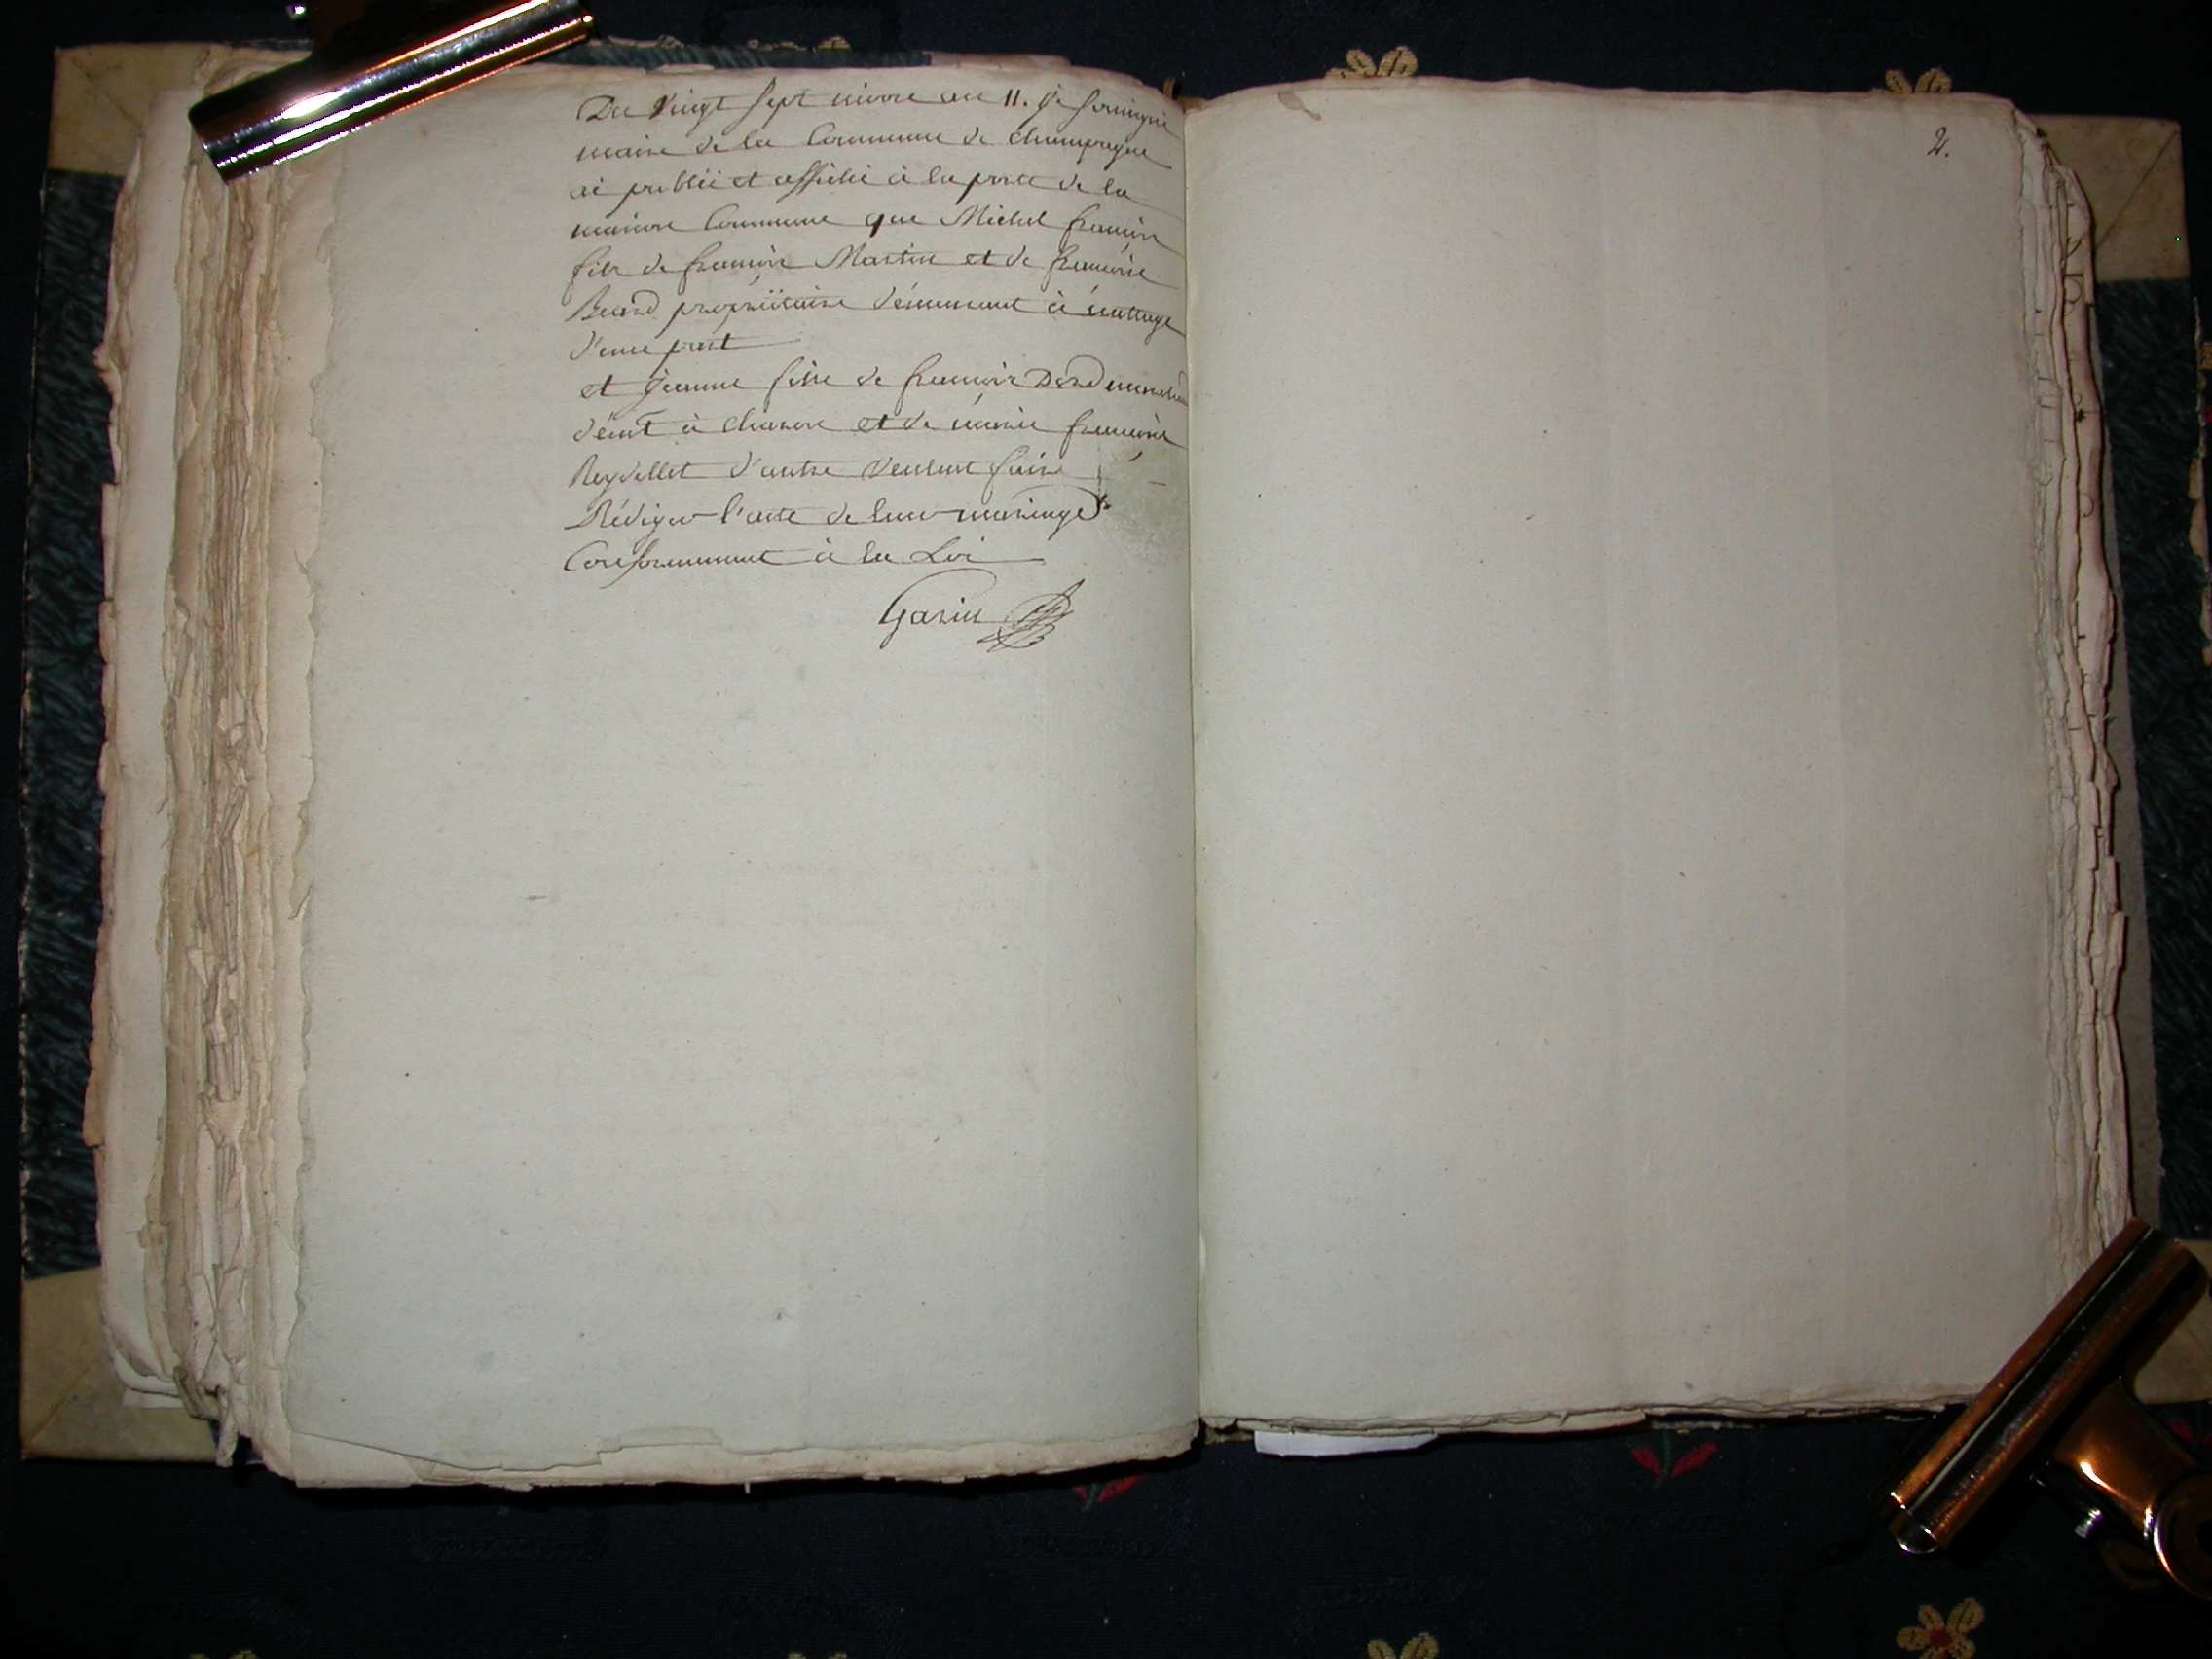 Du Vingt Sept nivose an 11. Je soussigné
maire de la Commune de Champagne
ai publié et affiché à la porte de la
maison Commune que Michel françois
fils de françois Martin et de françoise
propriétaire demeurant à
d'une part
et Jeanne fille de françois
dem.t à et de marie françoise
Reydellet d'autre Veulent faire
Rédiger l'acte de leur mariage
Conformement à la Loi
Garin
2.